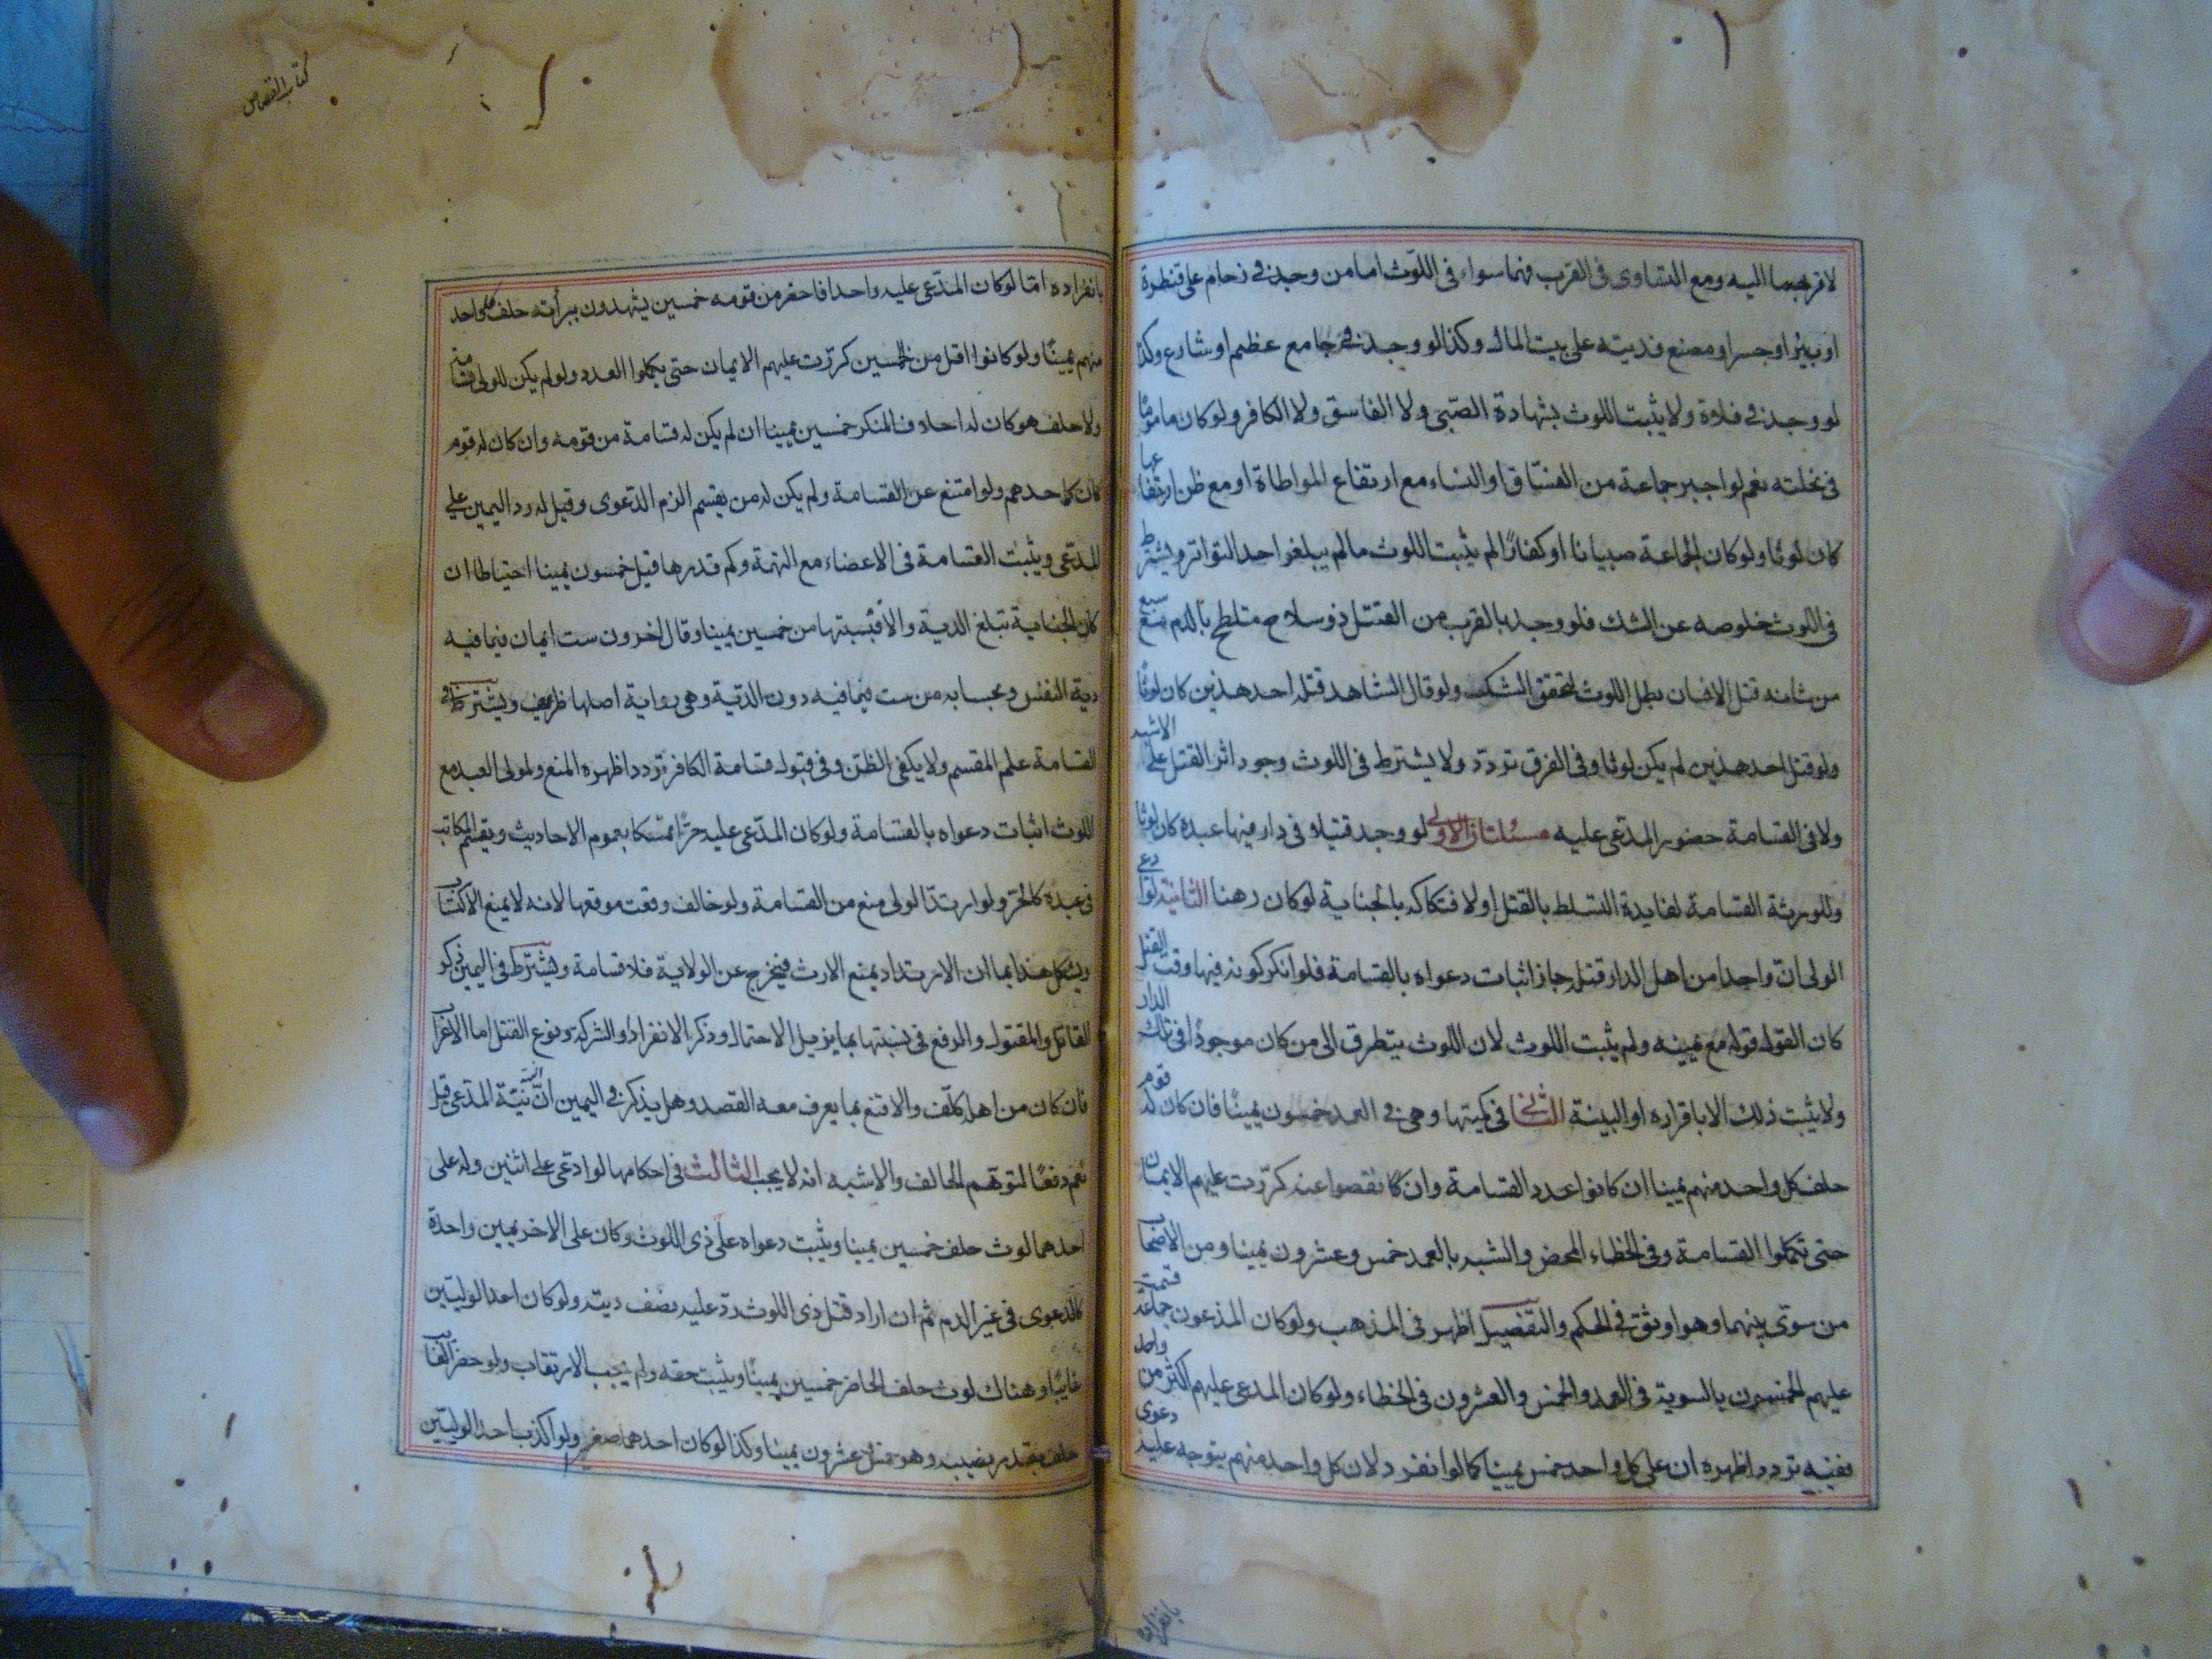 لاقربهما اليه ومع التساوى فى القرب فهما سواء فى اللوث اما من وجد فى زحام على قنطرة
او بئر او جسر او مصنع فديته على بيت المال وكذا لو وجد فى جامع عظيم او شارع وكذا
لو وجد فى فلاة ولا يثبت اللوث بشهادة الصبى ولا الفاسق ولا الكافر ولو كان مامونا
فى نحلته نعم لو اخبر جماعة من الفساق او النساء مع ارتفاع المواطاة او مع ظن ارتفاعها
كان لوثا ولو كان الجماعة صبيانا او كفارا لم يثبت اللوث ما لم يبلغوا حد التواتر ويشترط
فى اللوث خلوصه عن الشك فلو وجد بالقرب من القتيل ذو سلاح متلطخ بالدم مع سبع
من شانه قتل الانسان بطل اللوث لتحقق الشك ولو قال الشاهد قتله احد هذين كان لوثا
ولو قتل احد هذين لم يكن لوثا وفى الفرق تردد ولا يشترط فى اللوث وجود اثر القتل على الاشبه
ولا فى القسامة حضور المدعى عليه مسئلتان الاولى لو وجد قتيلا فى دار فيها عبده كان لوثا
وللورثة القسامة لفايدة التسلط بالقتل او لافتكاكه بالجناية لو كان رهنا الثانية لو ادعى
الولى ان واحدا من اهل الدار قتله جاز اثبات دعواه بالقسامة فلو انكر كونه فيها وقت القتل
كان القول قوله مع يمينه ولم يثبت اللوث لان اللوث يتطرق الى من كان موجودا فى تلك الدار
ولا يثبت ذلك الا باقراره او البينة الثانى فى كميتها وهى فى العمد خمسون يمينا فان كان له قوم
حلف كل واحد منهم يمينا ان كانوا عدد القسامة وان كانوا نقصوا عنه كررت عليهم الايمان
حتى تكملوا القسامة وفى الخطاء المحض والشبه بالعمد خمس وعشرون يمينا ومن الاصحاب
من سوى بينهما وهو اوثق فى الحكم والتفصيل اظهر فى المذهب ولو كان المدعون جماعة قسمت
عليهم الخمسون بالسوية فى العمد والخمس والعشرون فى الخطاء ولو كان المدعى عليهم اكثر من واحد
ففيه تردد اظهره ان على كل واحد خمس يمينا كما لو انفرد لان كل واحد منهم يتوجه عليه دعوى
بانفراده
كتاب القصاص
بانفراده اما لو كان المدعى عليه واحدا فاحضر من قومه خمسين يشهدون ببرأته حلف كل واحد
منهم يمينا ولو كانوا اقل من الخمسين كررت عليهم الايمان حتى يكملوا العدد ولو لم يكن للولى قسامة
ولا حلف هو كان له احلاف المنكر خمسين يمينا ان لم يكن له قسامة من قومه وان كان له قوم
كان كاحدهم ولو امتنع عن القسامة ولم يكن له من يقسم الزم الدعوى وقيل له رد اليمين على
المدعى ويثبت القسامة فى الاعضاء مع التهمة وكم قدرها قيل خمسون يمينا احتياطا ان
كان الجناية تبلغ الدية والا فنسبتها من خمسين يمينا وقال اخرون ست ايمان فيما فيه
دية النفس وبحسابه من ست فيما فيه دون الدية وهى رواية اصلها ظريف ويشترط فى
القسامة علم المقسم ولا يكفى الظن وفى قبول قسامة الكافر تردد اظهره المنع ولمولى العبد مع
اللوث اثبات دعواه بالقسامة ولو كان المدعى عليه حرا تمسكا بعموم الاحاديث ويقسم المكاتب
فى عبده كالحر ولو ارتد الولى منع من القسامة ولو خالف وقعت موقعها لانه لا يمنع الاكتساب
ويشكل هذا بما ان الارتداد يمنع الارث فيخرج عن الولاية فلا قسامة ويشترط فى اليمين ذكر
القاتل والمقتول والرفع فى نسبتها بما يزيل الاحتمال وذكر الانفراد او الشركة ونوع القتل اما الاعراب
فان كان من اهله كلف والا قنع بما يعرف معه القصد وهل يذكر فى اليمين ان النية نية المدعى قيل
نعم دفعا لتوهم الحالف والاشبه انه لا يجب الثالث فى احكامها لو ادعى على اثنين وله على
احدهما لوث حلف خمسين يمينا ويثبت دعواه على ذى اللوث وكان على الاخر يمين واحدة
كالدعوى فى غير الدم ثم ان اراد قتل ذى اللوث رد عليه نصف ديته ولو كان احد الوليين
غايبا وهناك لوث حلف الحاضر خمسين يمينا ويثبت حقه ولم يجب الارتقاب ولو حضر الغايب
حلف بقدر نصيبه وهو خمس وعشرون يمينا وكذا لو كان احدهما صغيرا ولو اكذب احد الوليين